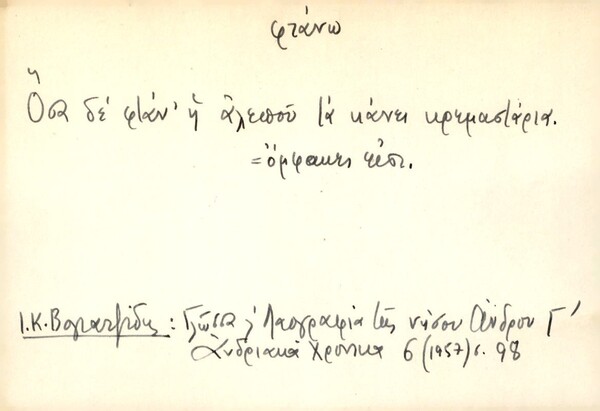 φτάνω
Ὅσα δέ φτάν' ἡ ἀλεπού τά κάνει κρεμαστάρια.
=ὄμφακες εἰσι.
Ι.Κ. Βογιατζίδης: Γλῶσσα & Λαογραφία τῆς νήσου Ἄνδρου Γ'
Ἀνδριακά Χρονικά 6 (1957) σ. 98